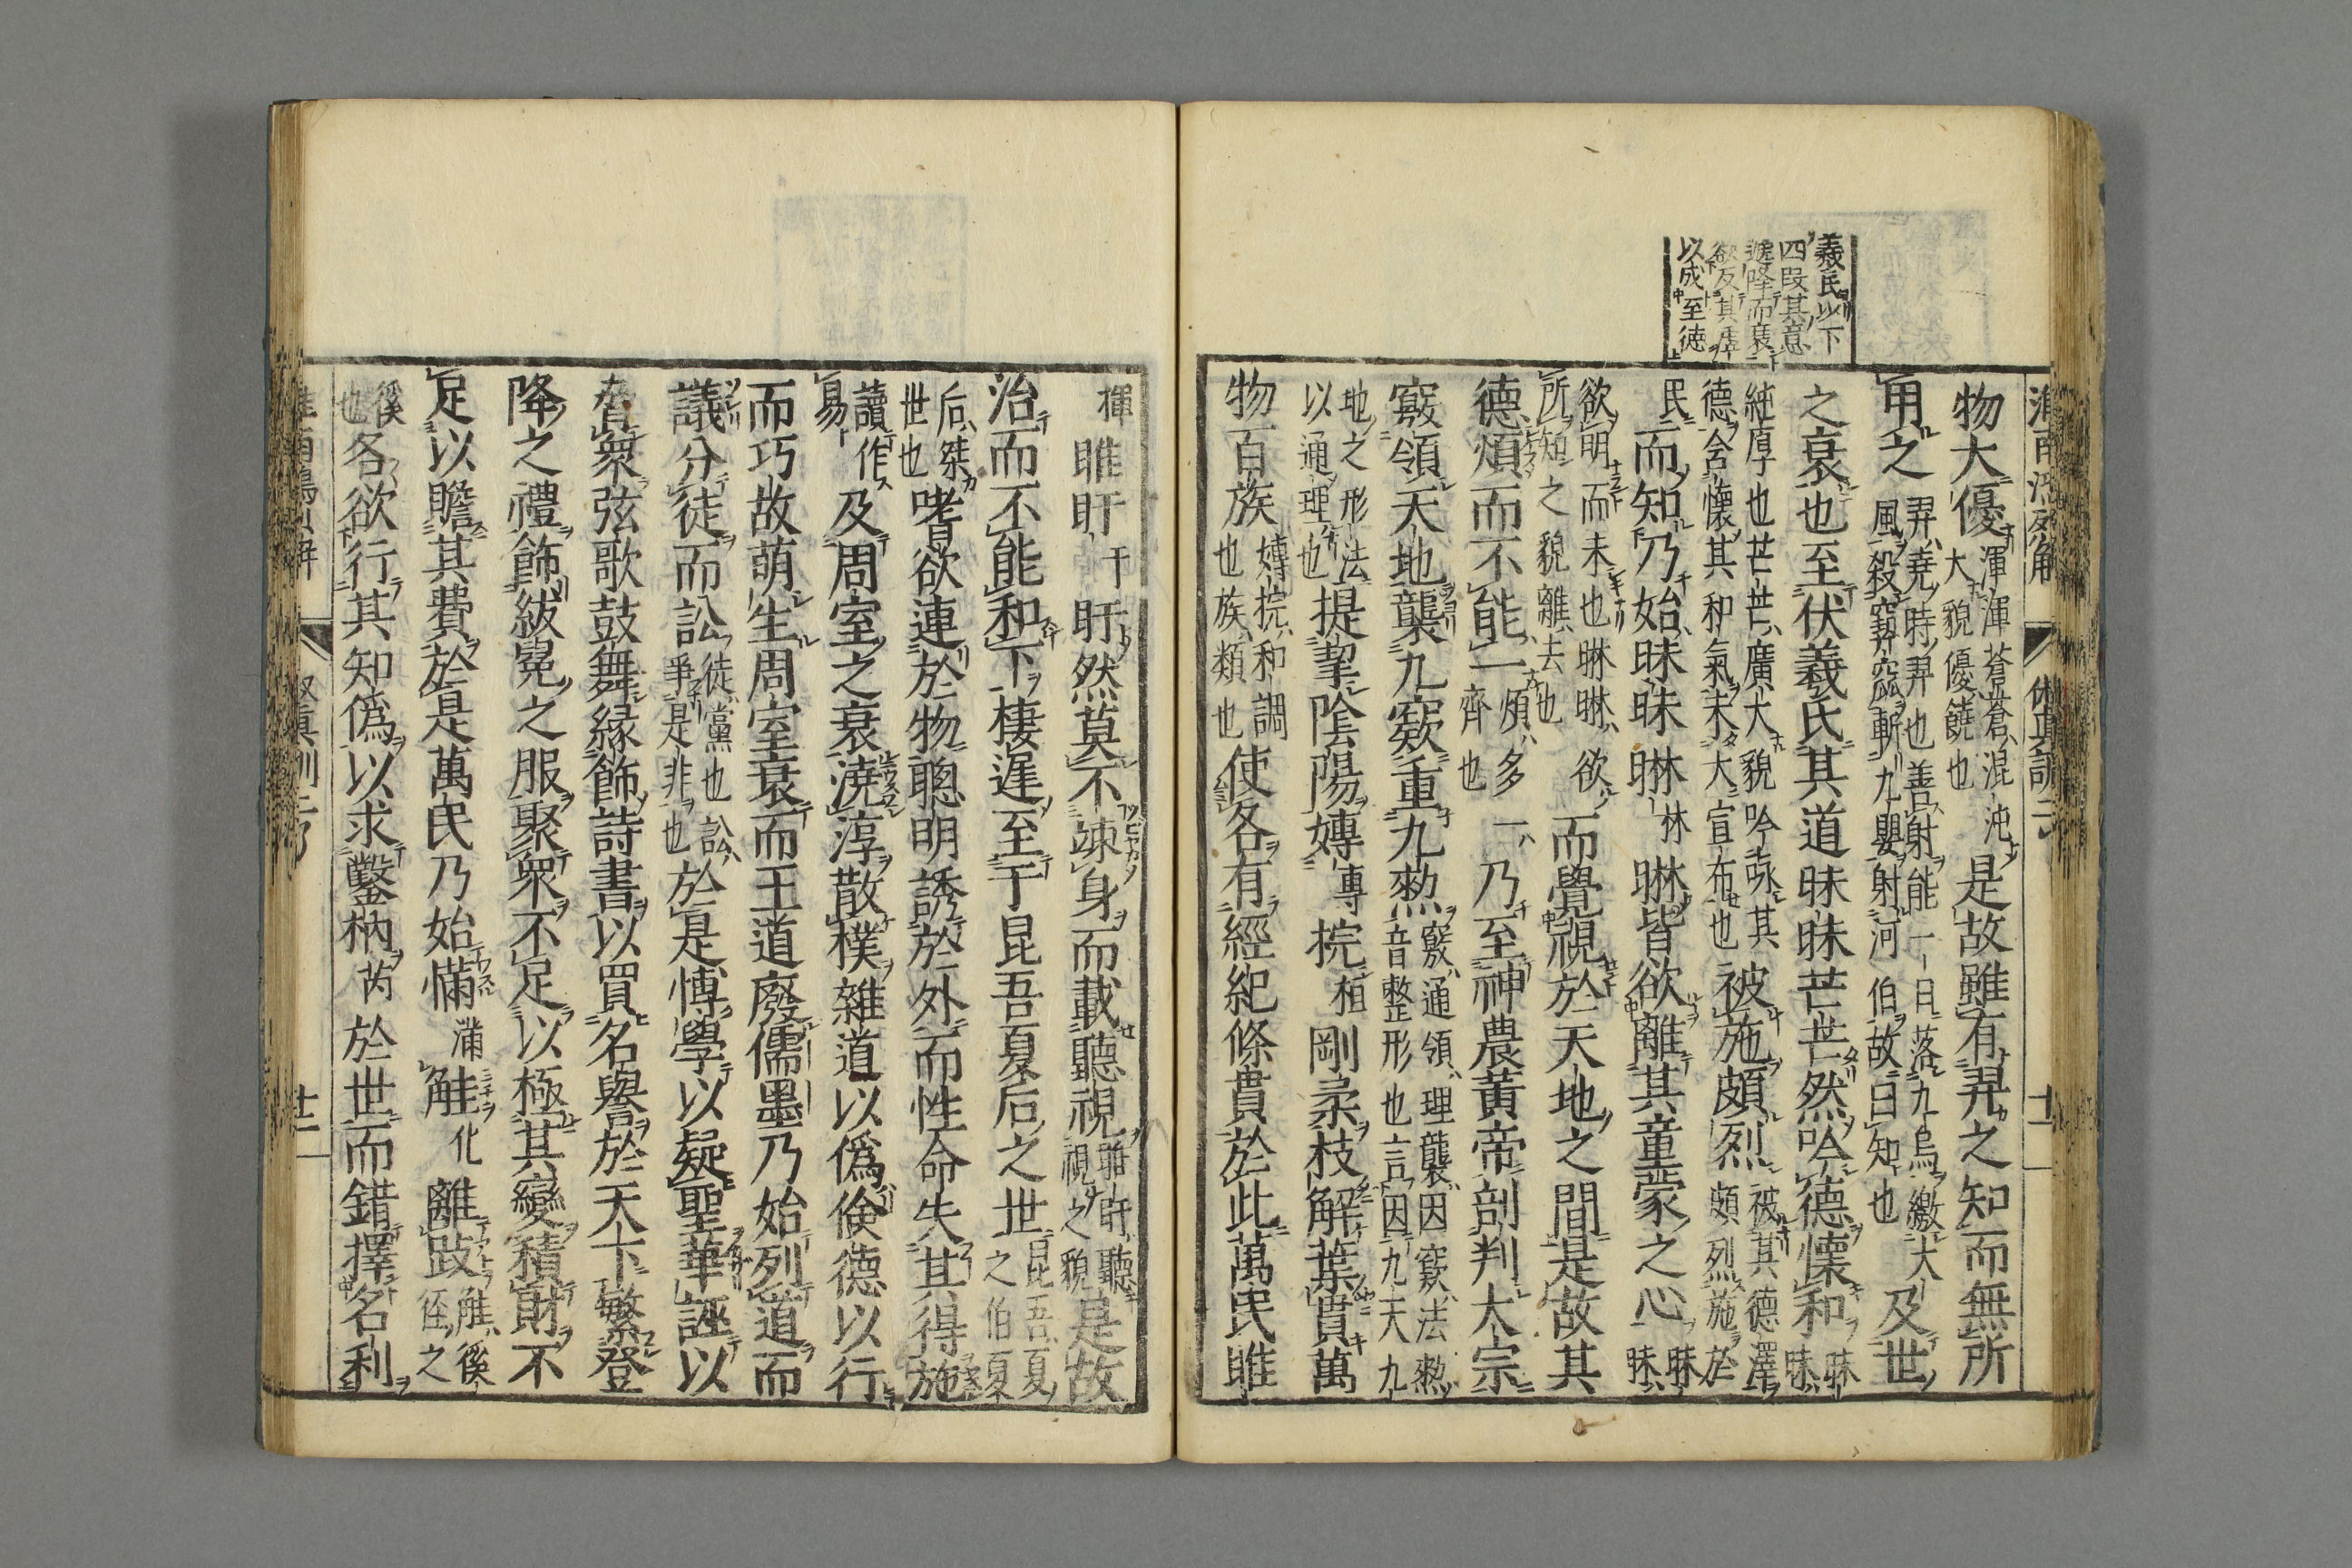 羲氏以下
四段其意
遞降而衰
欲反其
以成至徳
俶真訓二
物大優渾渾蒼蒼混沌大貌優饒也是故雖有羿之知而無所
用之羿堯時羿也善射能一日落九烏繳大風殺窫窳斬九嬰射河伯故曰知也及世
之衰也至伏羲氏其道昧昧芒芒然吟德懷和昧昧
純厚也芒芒廣大貌吟詠其德含懷其和氣未大宣布也被施頗烈被其德澤頗烈施於
民而知乃始昧昧晽林晽皆欲離其童蒙之心昧昧
欲明而未也晽晽欲所知之貌離去也而覺視於天地之間是故其
德煩而不能一煩多一齊也乃至神農黃帝剖判大宗
竅領天地襲九窾重九㙷竅通領理襲因窾法㙷音整形也言因九天九
地之形法以通理也提挈陰陽嫥專捖桓剛柔枝解葉貫萬
物百族嫥捖和調也族類也使各有經紀條貫於此萬民睢
揮睢盱干盱然莫不竦身而載聽視睢盱聽視之貌是故
治而不能和下棲遲至于昆吾夏后之世昆吾夏之伯夏
后桀世也嗜欲連於物聰明誘於外而性命失其得施
讀作易及周室之衰澆淳散樸雜道以僞儉德以行
而巧故萌生周室衰而王道廢儒墨乃始列道而
議分徒而訟徒黨也訟爭是非也於是博學以疑聖華誣以
脅衆弦歌鼓舞緣飾詩書以買名譽於天下繁登
降之禮飾紱冕之服聚衆不足以極其變積財不
足以贍其費於是萬民乃始慲滿觟化離跂觟徯徑之
徯也各欲行其知僞以求鑿枘芮於世而錯擇名利